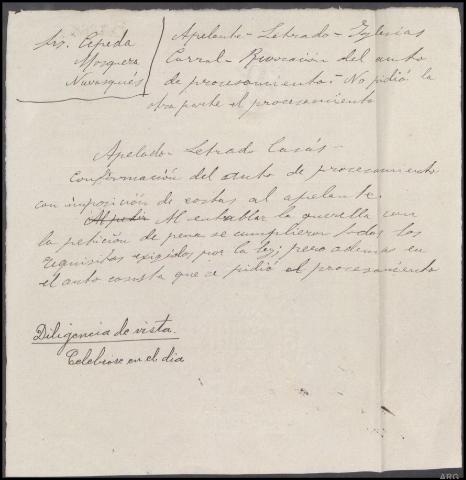 Srs. Cepeda
Mosquera
Navasqués
Apelante - Letrado - Iglesias
Corral - Revocación del auto
de procesamiento - No pidió la
otra parte el procesamiento
Apelado - Letrado Casás -
Confirmación del auto de procesamiento
con imposición de costas al apelante.
Al pedir Al entablar la querella con
la petición de pena se cumplieron todos los
requisitos exigidos por la ley; pero además en
el auto consta que se pidió el procesamiento
Diligencia de vista.
Celebrose en el dia
ARG